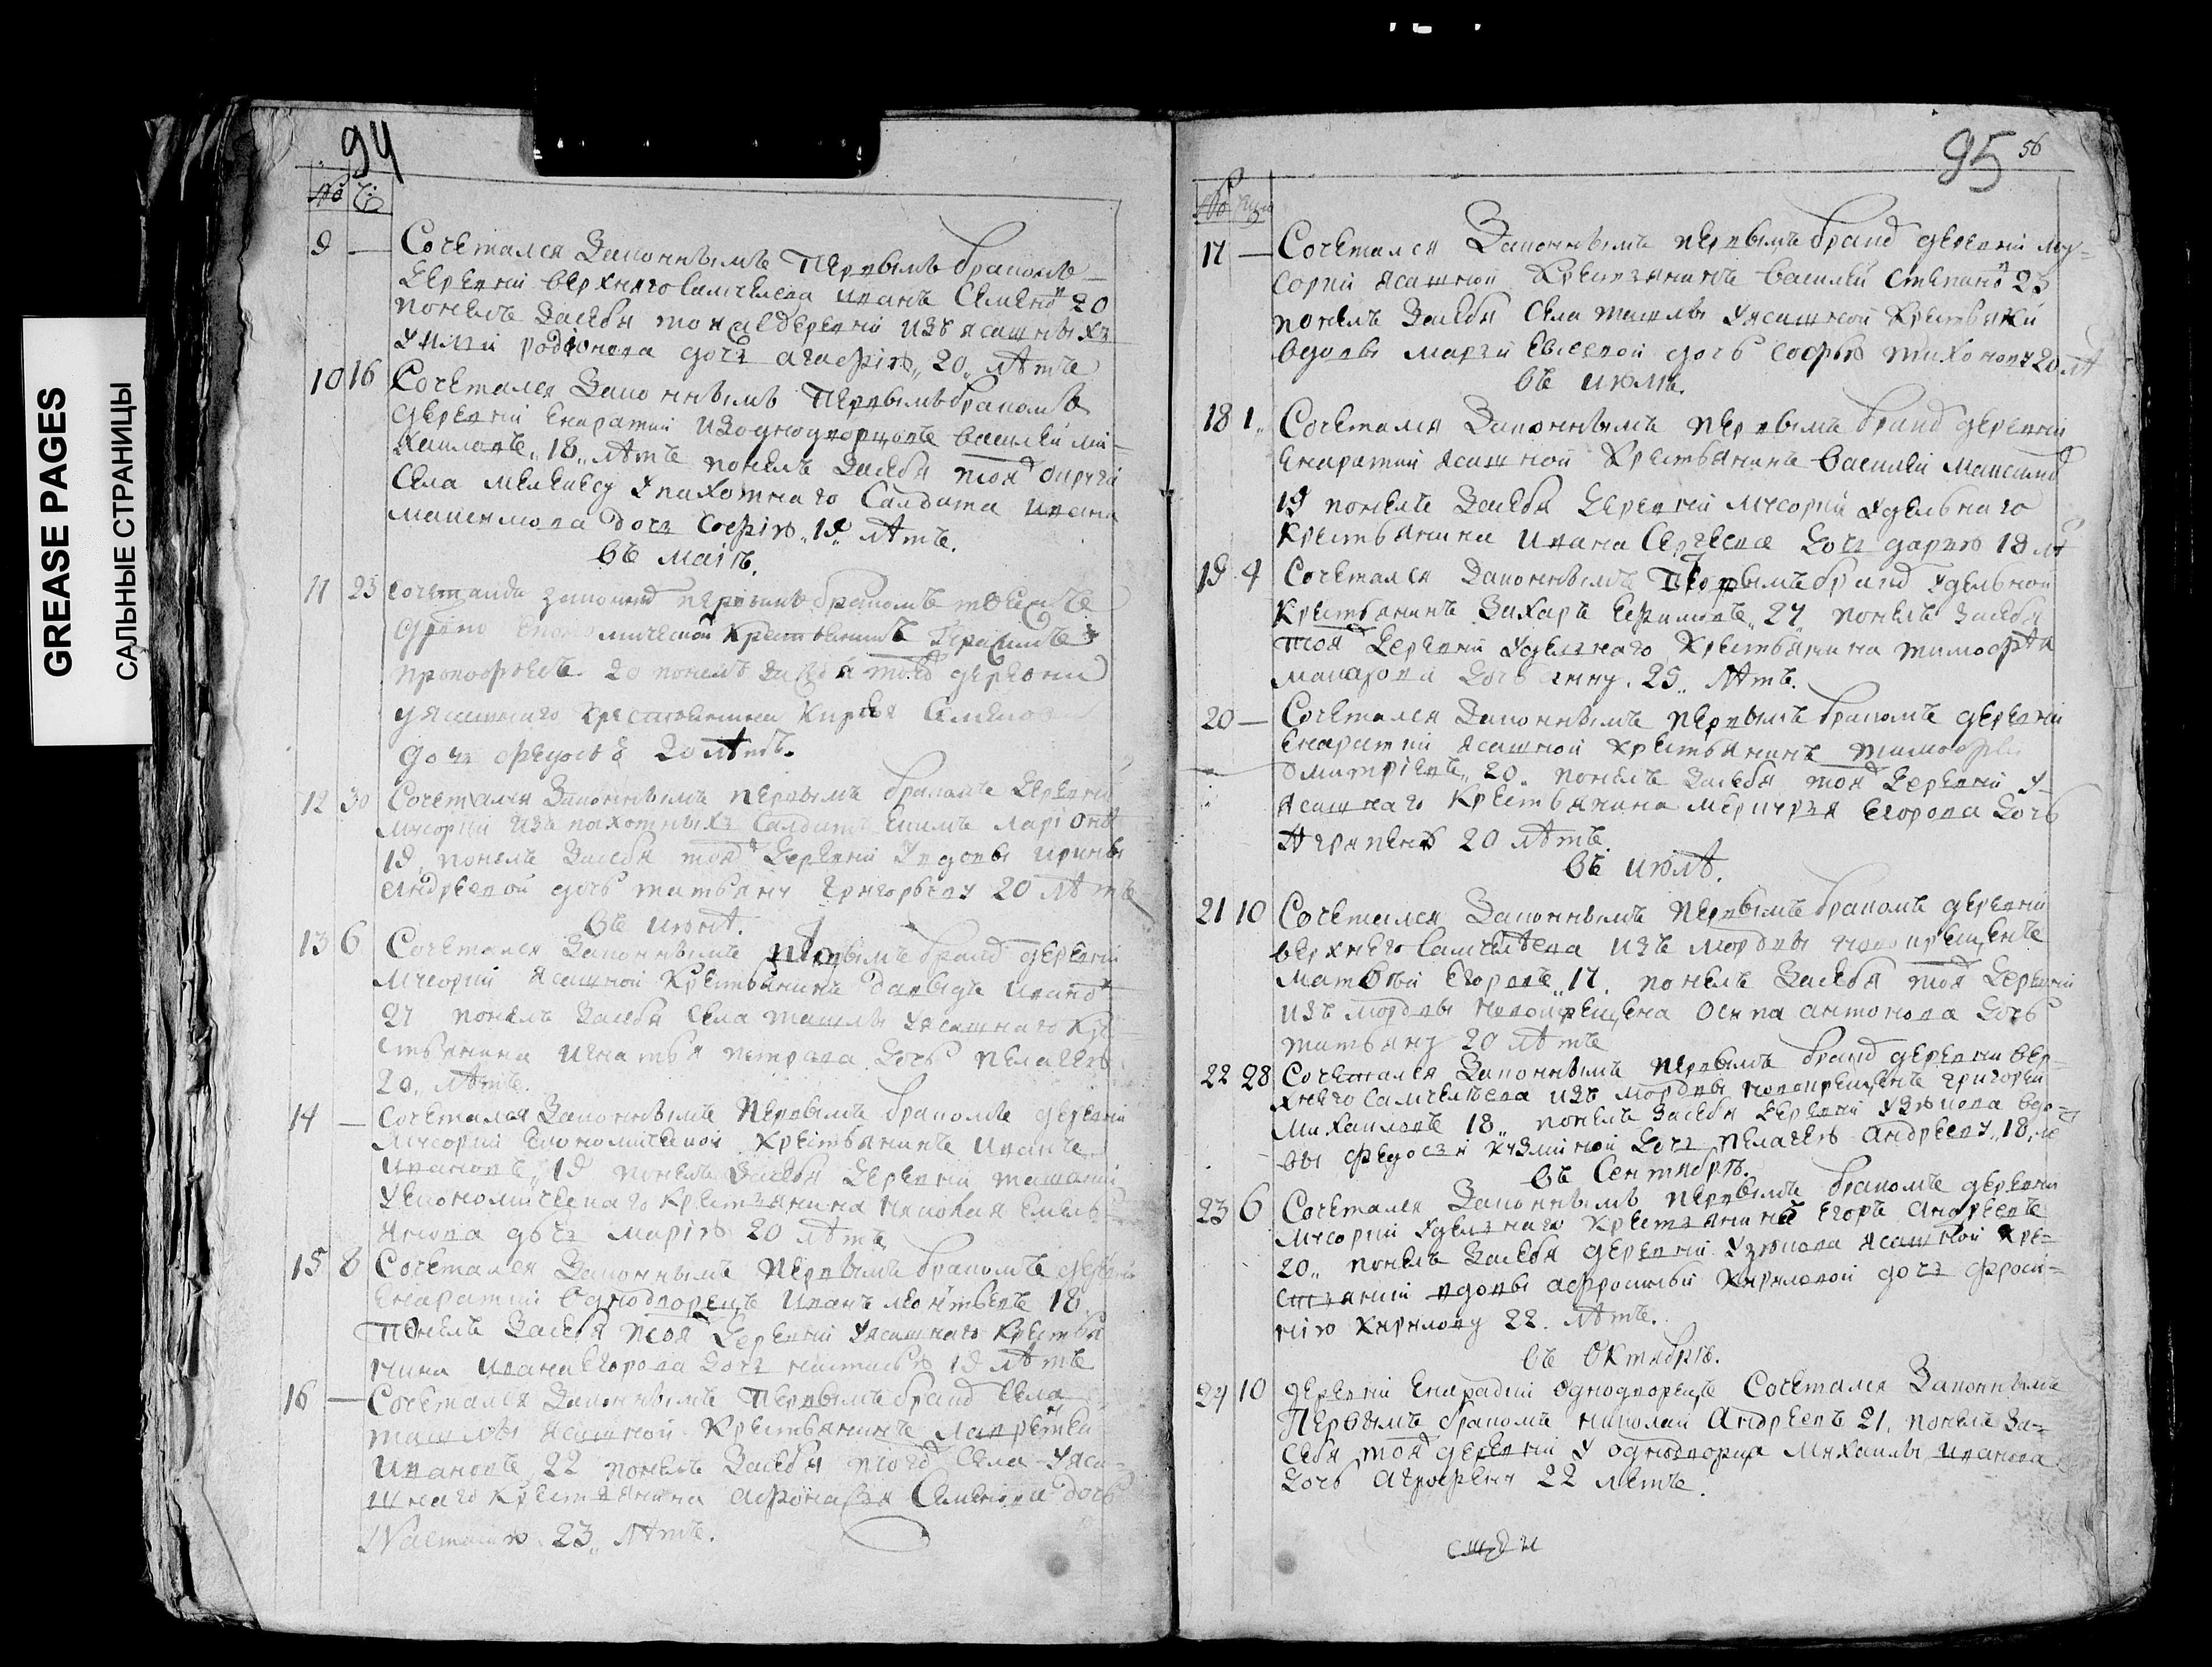 GREASE PAGES
САЛЬНЫЕ СТРАНИЦЫ
94
№
9 — Сочетался Законнымъ Первымъ бракомъ
деревни верхняго Самчелеева иванъ Семено 20
понелъ Засебя тояжъ деревни изъ ясашныхъ
родионова дочь агафiю 20 лѣтъ
10 16 Сочетался Законнымъ Первымъ бракомъ
деревни Екаратки Изоднодворцовъ василей ми-
хаиловъ 18 лѣтъ понелъ Засебя тояжъ округи
Села мелекесу Упахотнаго Салдата ивана
максимова дочь Софiю 19 лѣтъ.
въ маiѣ.
11 23 сочетался законно первымъ бракомъ
крестьянинъ Герасимъ
прокофьевъ 20 понелъ Засебя тояжъ деревни
уясашнаго крестьянина Семенова
дочь федосью 20 лѣтъ.
12 30 Сочетался Законнымъ первымъ бракомъ деревни
мусорки изъ пахотныхъ Салдатъ Екимъ Ларионо
19 понелъ Засебя тояжъ деревни Увдовы ирины
андреевой дочь татьяну Григорьеву 20 лѣтъ
въ июнѣ.
13 6 Сочетался Законнымъ первымъ брако деревни
мусорки Ясашной Крестьянинъ давыдъ ивано
27 понелъ Засебя Села ташлы Уясашнаго кре
стьянина игнатья петрова дочь пелагею
20 лѣтъ.
14 — Сочетался Законнымъ первымъ бракомъ деревни
мусорки Економической Крестьянинъ иванъ
ивановъ 19 понелъ Засебя деревни
Уекономическаго Крестьянина Николая Емель
янова дочь марiю 20 лѣтъ
15 8 Сочетался Законнымъ первымъ бракомъ деревни
Екаратки Однодворецъ иванъ леонтьевъ 18
Понелъ Засебя тояжъ деревни Уясашнаго Крестья
нина ивана Егорова дочь настасью 19 лѣтъ
16 — Сочетался Законнымъ Первымъ брако Села
ташлы Ясашной Крестьянинъ Лаврентей
ивановъ 22 понелъ Засебя тогожъ Села Уяса
шнаго Крестьянина афонасья Семенова дочь
Настасью 23 лѣтъ.
95 56
№ число
17 — Сочетался Законнымъ первымъ брако деревни му-
сорки ясашной Крестьянинъ василей Степано 23
понелъ Засебя Села ташлы Уясашной Крестьянки
вдовы марьи Евсеевой дочь софью тихонову 20 лѣ
въ июнѣ.
18 1 Сочетался Законнымъ первымъ брако деревни
Екаратки ясашной Крестьянинъ василей максимо
19 понелъ Засебя деревни мусорки Удельнаго
Крестьянина ивана Сергеева дочь дарью 18 лѣ
19 4 Сочетался Законнымъ Первымъ брако Удельной
Крестьянинъ Захаръ Ефимовъ 27 понелъ Засебя
тояжъ деревни Уделнаго Крестьянина тимофѣя
макарова дочь анну 25 лѣтъ.
20 — Сочетался Законнымъ первымъ бракомъ деревни
Екаратки ясашной Крестьянинъ тимофей
дмитрiевъ 20 понелъ Засебя тояжъ деревни У
ясашнаго Крестьянина меркурья Егорова дочь
Аграпену 20 лѣтъ.
въ июлѣ.
21 10 Сочетался Законнымъ первымъ бракомъ деревни
верхнего Самчелѣева изъ мордвы новокрещенъ
матвѣй Егоровъ 17 понелъ Засебя тояжъ деревни
изъ мордвы новокрещена Осипа антонова дочь
татьяну 20 лѣтъ
22 28 Сочетался Законнымъ первымъ брако деревни вер-
хнего Самчелѣева изъ мордвы новокрещенъ григорей
михаиловъ 18 понелъ Засебя деревни Узюкова вдо-
вы федосьи кузминой дочь пелагею андрееву 18 лѣ
въ Сентябрѣ.
23 6 Сочетался Законнымъ первымъ бракомъ деревни
мусорки Уделнаго Крестьянинъ Егоръ андреевъ
20 понелъ Засебя деревни Узюкова Ясашной кре-
стьянки вдовы афросиньи Кириловой дочь фроси-
нiю Кирилову 22 лѣтъ.
въ Октябрѣ.
24 10 деревни Екарадки Однодворецъ Сочетался Законнымъ
Первымъ бракомъ николай Андреевъ 21 понелъ За-
себя тояжъ деревни У однодворца михаилы иванова
дочь Аграфену 22 летъ.